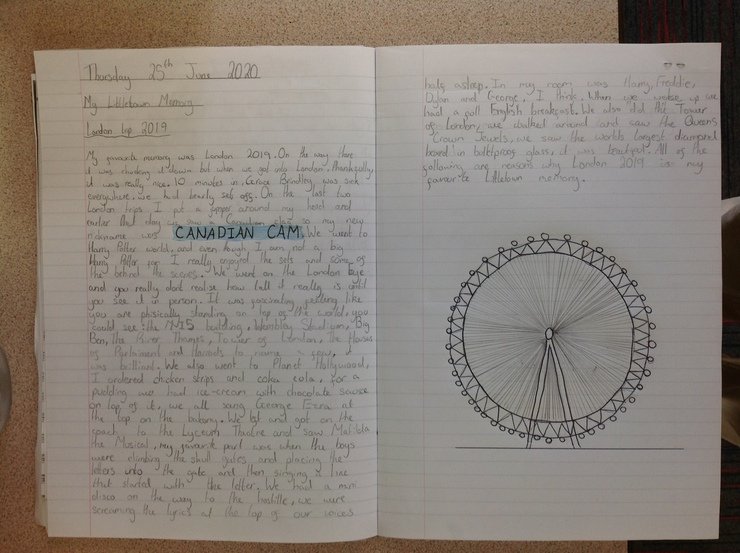 Thursday 25th June 2020
My Littletown Memory
London trip 2019
My favourite memory was London 2019. On the way there
it was chucking it down but when we got into London, thankfully,
it was really nice. 10 minutes in, George Brindley was sick
everywhere, we had bearly sets off. On the last two
London trips I put a jumper around my head and
earlier that day we saw a Canadian flag so my new
nickname was CANADIAN CAM. We went to
Harry Potter world, and even though I am not a big
Harry Potter fan I really enjoyed the sets and some of
the behind the scenes. We went on the London Eye
and you really dont realise how tall it really is until
you see it in person. It was fascinating feeling like
you are phisically standing on top of the world, you
could see: the MI5 building, Wembley Stadium, Big
Ben, the River Thames, Tower of London, the Houses
of Parliament and Harrods to name a few, it
was brilliant. We also went to Planet Hollywood,
I ordered chicken strips and coka cola, for a
pudding we had ice-cream with chocolate sauce
on top of it, we all sang George Ezra at
the top on the balcony. We left and got on the
coach to the Lyceum Theatre and saw Matilda
the Musical, my favourite part was when the boys
were climbing the skull gates and placing the
letters unto the gate and then singing a line
that started with the letter. We had a mini
disco on the way to the hostille, we were
screaming the lyrics at the top of our voices
half asleep. In my room was Harry, Freddie,
Dylan and George, I think. When we woke up we
had a full English breakfast. We also did the Tower
of London, we walked around and saw the Queens
Crown Jewels, we saw the worlds largest diamond
board in bulletproof glass, it was beautiful. All of the
following are reasons why London 2019 is my
favourite Littletown memory.